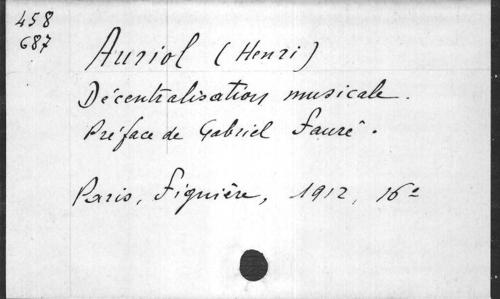 458
687
Auriol (Henri)
Décentralisation musicale.
Préface de Gabriel Fauré.
Paris, Figuière, 1912, 16º